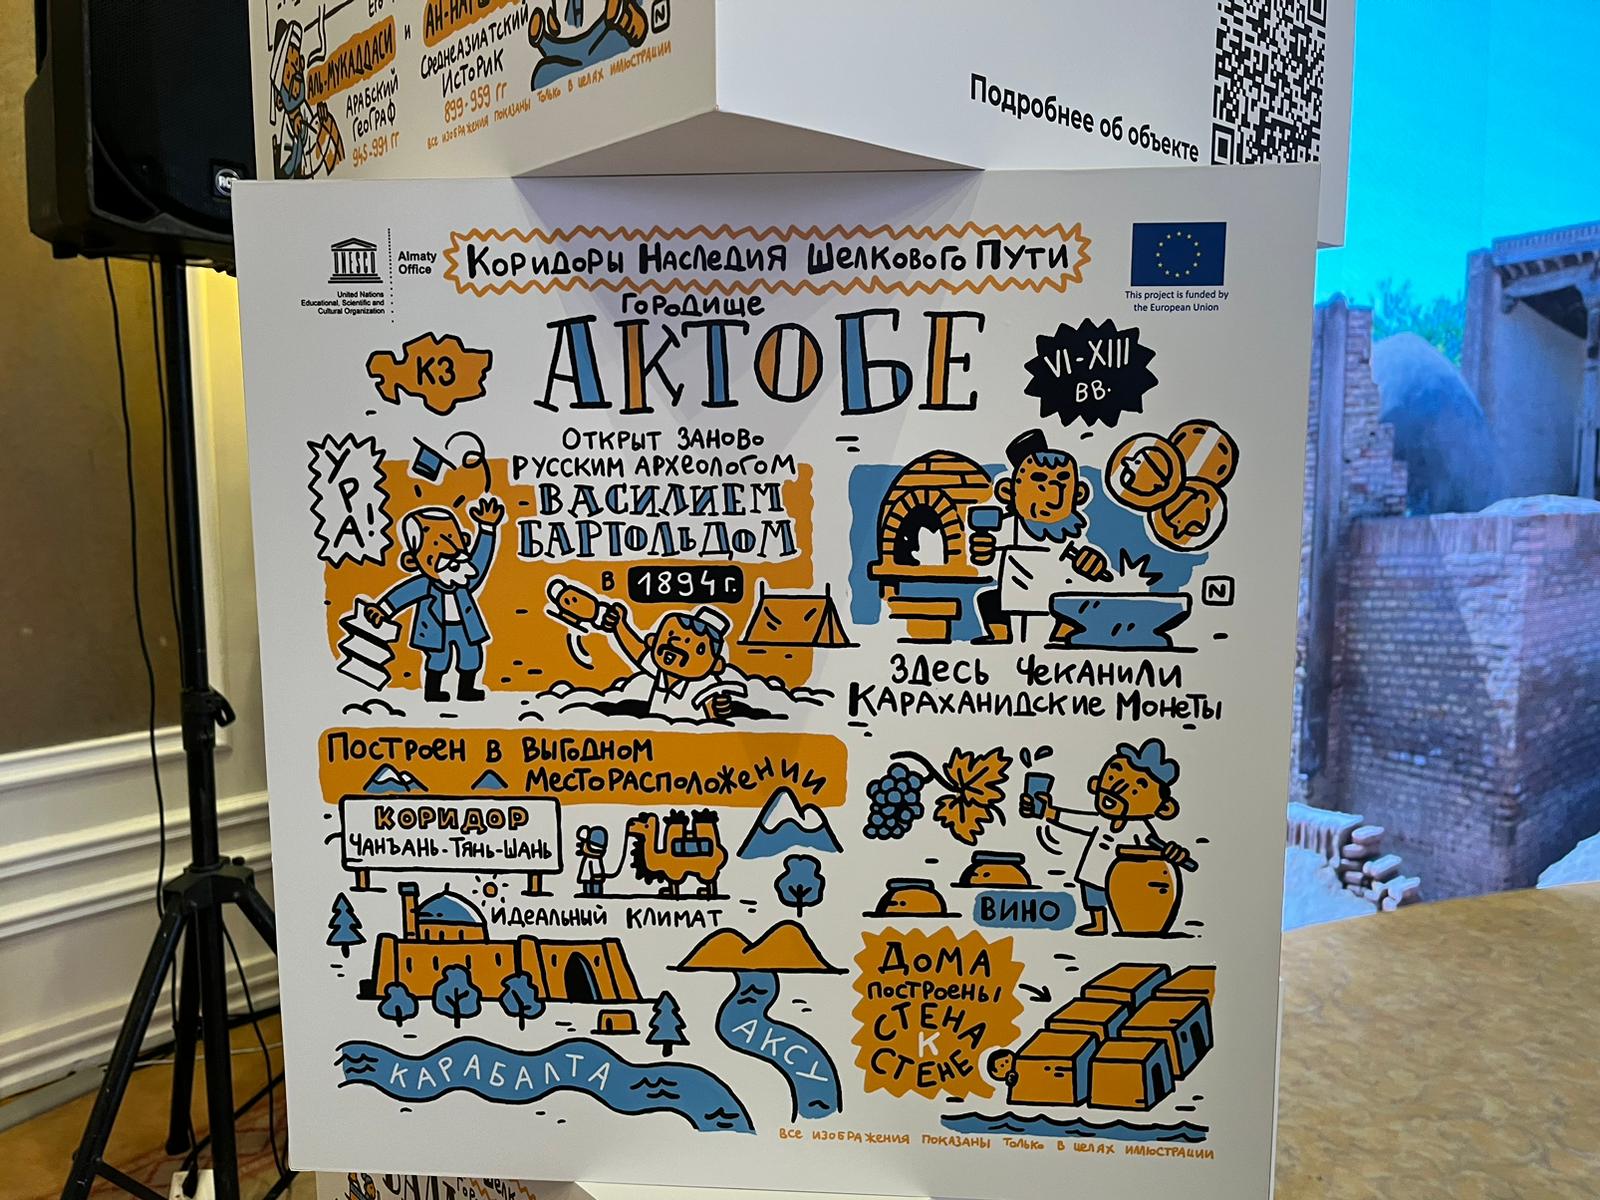 АЛЬ-МУКАДДАСИ
АРАБСКИЙ
ГЕОГРАФ
945-991 ГГ
и
СРЕДНЕАЗИАТСКИЙ
ИСТОРИК
899-959 ГГ
ВСЕ ИЗОБРАЖЕНИЯ ПОКАЗАНЫ ТОЛЬКО В ЦЕЛЯХ ИЛЛЮСТРАЦИИ
N
Подробнее об объекте
RCF
UNESCO
Almaty
Office
United Nations
Educational, Scientific and
Cultural Organization
Коридоры Наследия Шелкового Пути
This project is funded by
the European Union
ГОРОДИЩЕ
АКТОБЕ
КЗ
VI-XIII
ВВ.
УРА!
ОТКРЫТ ЗАНОВО
РУССКИМ АРХЕОЛОГОМ
ВАСИЛИЕМ
БАРТОЛЬДОМ
В 1894 г.
N
ЗДЕСЬ ЧЕКАНИЛИ
КАРАХАНИДСКИЕ МОНЕТЫ
ПОСТРОЕН В ВЫГОДНОМ
МЕСТОРАСПОЛОЖЕНИИ
КОРИДОР
ЧАНЪАНЬ-ТЯНЬ-ШАНЬ
ИДЕАЛЬНЫЙ КЛИМАТ
ВИНО
ДОМА
ПОСТРОЕНЫ
СТЕНА
К
СТЕНЕ
КАРАБАЛТА
АКСУ
ВСЕ ИЗОБРАЖЕНИЯ ПОКАЗАНЫ ТОЛЬКО В ЦЕЛЯХ ИЛЛЮСТРАЦИИ